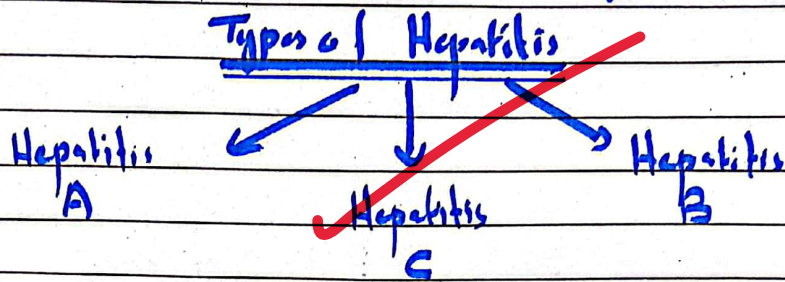 Types of Hepatitis
Hepatitis A
Hepatitis C
Hepatitis B